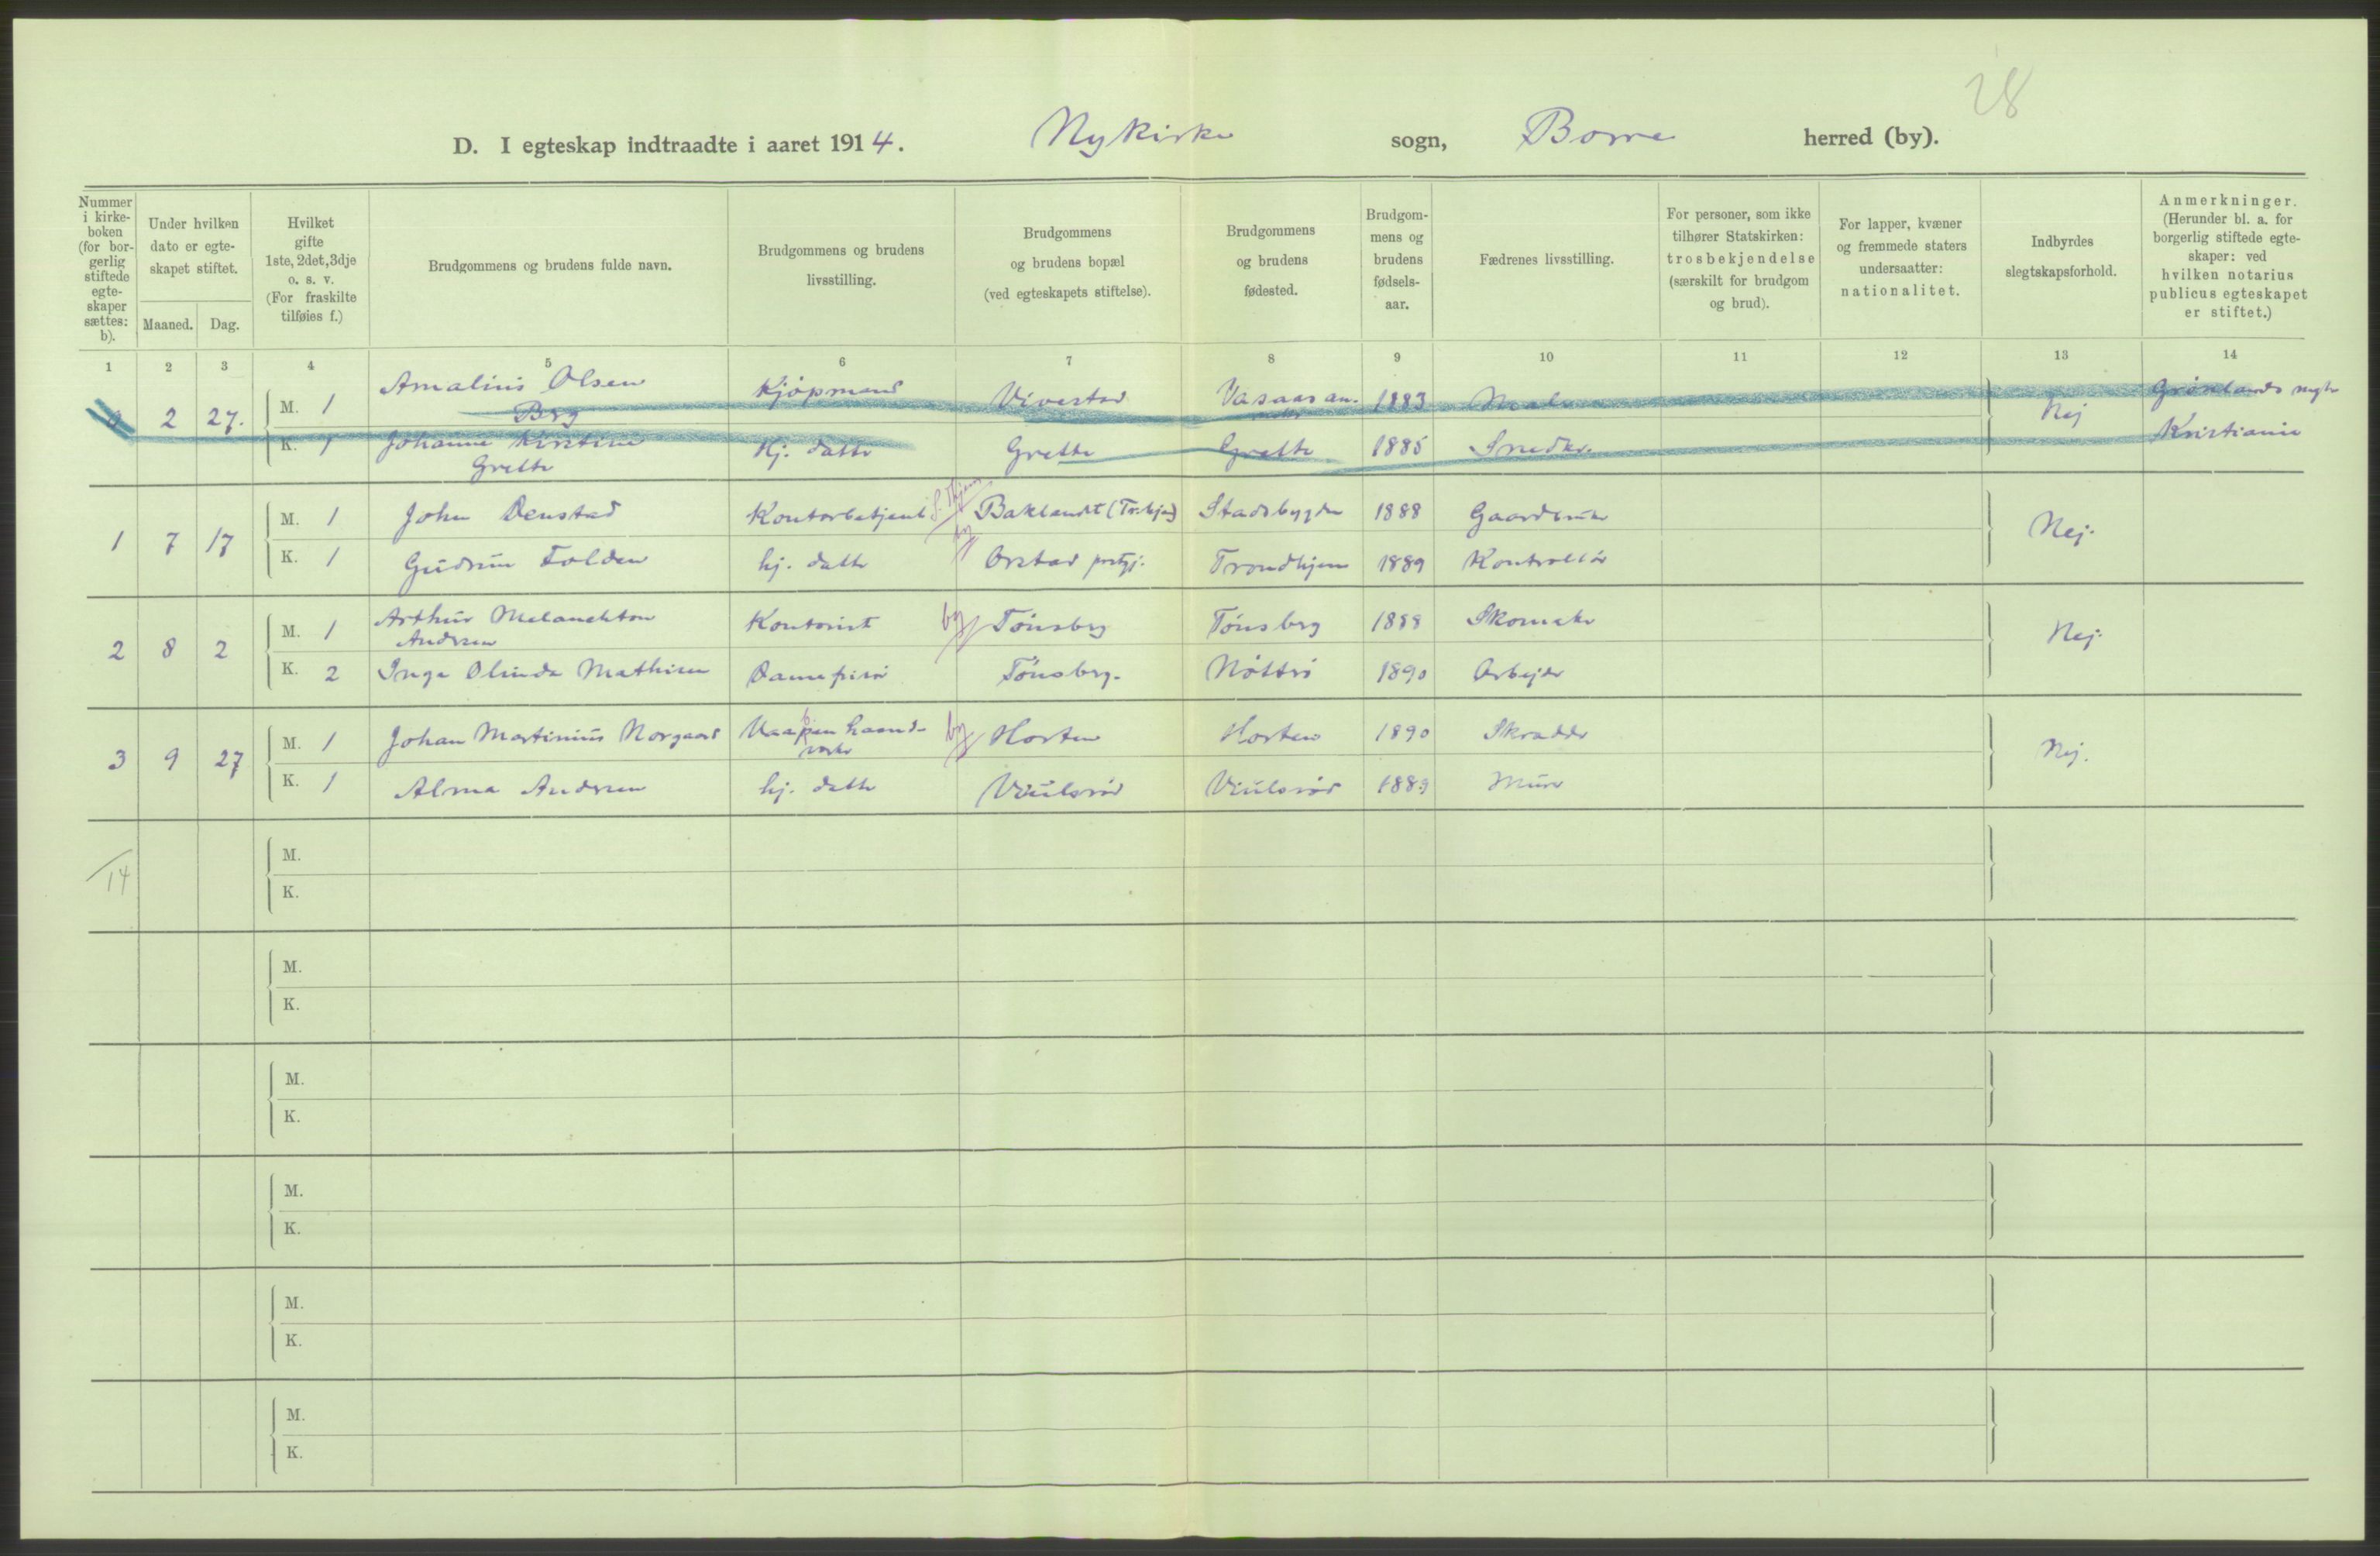 28
D. I egteskap indtraadte i aaret 1914. Nykirke sogn, Borre herred (by).
Nummer i kirke- boken (for bor- gerlig stiftede egte- skaper sættes: b).
Under hvilken dato er egte- skapet stiftet.
Maaned. Dag.
Hvilket gifte 1ste, 2det, 3dje o. s. v. (For fraskilte tilføies f.)
Brudgommens og brudens fulde navn.
Brudgommens og brudens livsstilling.
Brudgommens og brudens bopæl (ved egteskapets stiftelse).
Brudgommens og brudens fødested.
Brudgom- mens og brudens fødsels- aar.
Fædrenes livsstilling.
For personer, som ikke tilhører Statskirken: trosbekjendelse (særskilt for brudgom og brud).
For lapper, kvæner og fremmede staters undersaatter: nationalitet.
Indbyrdes slegtskapsforhold.
Anmerkninger. (Herunder bl. a. for borgerlig stiftede egte- skaper: ved hvilken notarius publicus egteskapet er stiftet.)
1 2 3 4 5 6 7 8 9 10 11 12 13 14
2 27. M. 1 Amalius Olsen Berg Kjøpmand Vivestad Vasaas an- 1883 Nej Grønlands
K. 1 Johanne Kirstine Grette Hj. datter Grette Grette 1885 Snedker Kristiania
1 7 17 M. 1 John Denstad Kontorbetjent Baklandet (Tr.hjem) Stadsbygden 1888 Gaardbruker Nej.
K. 1 Gudrun Folden hj. datter Orstad Trondhjem 1889 Kontrollør
2 8 2 M. 1 Arthur Melanchton Andersen Kontorist by Tønsberg Tønsberg 1888 Skomaker Nej.
K. 2 Inga Olinda Mathisen Damefrisør Tønsberg. Nøtterø 1890 Arbejder
3 9 27 M. 1 Johan Martinius Norgaard Vaapenhaand- verker by Horten Horten 1890 Skrædder Nej.
K. 1 Alma Andersen hj. datter Viulsrød Viulsrød 1889 Murer
14 M.
K.
M.
K.
M.
K.
M.
K.
M.
K.
M.
K.